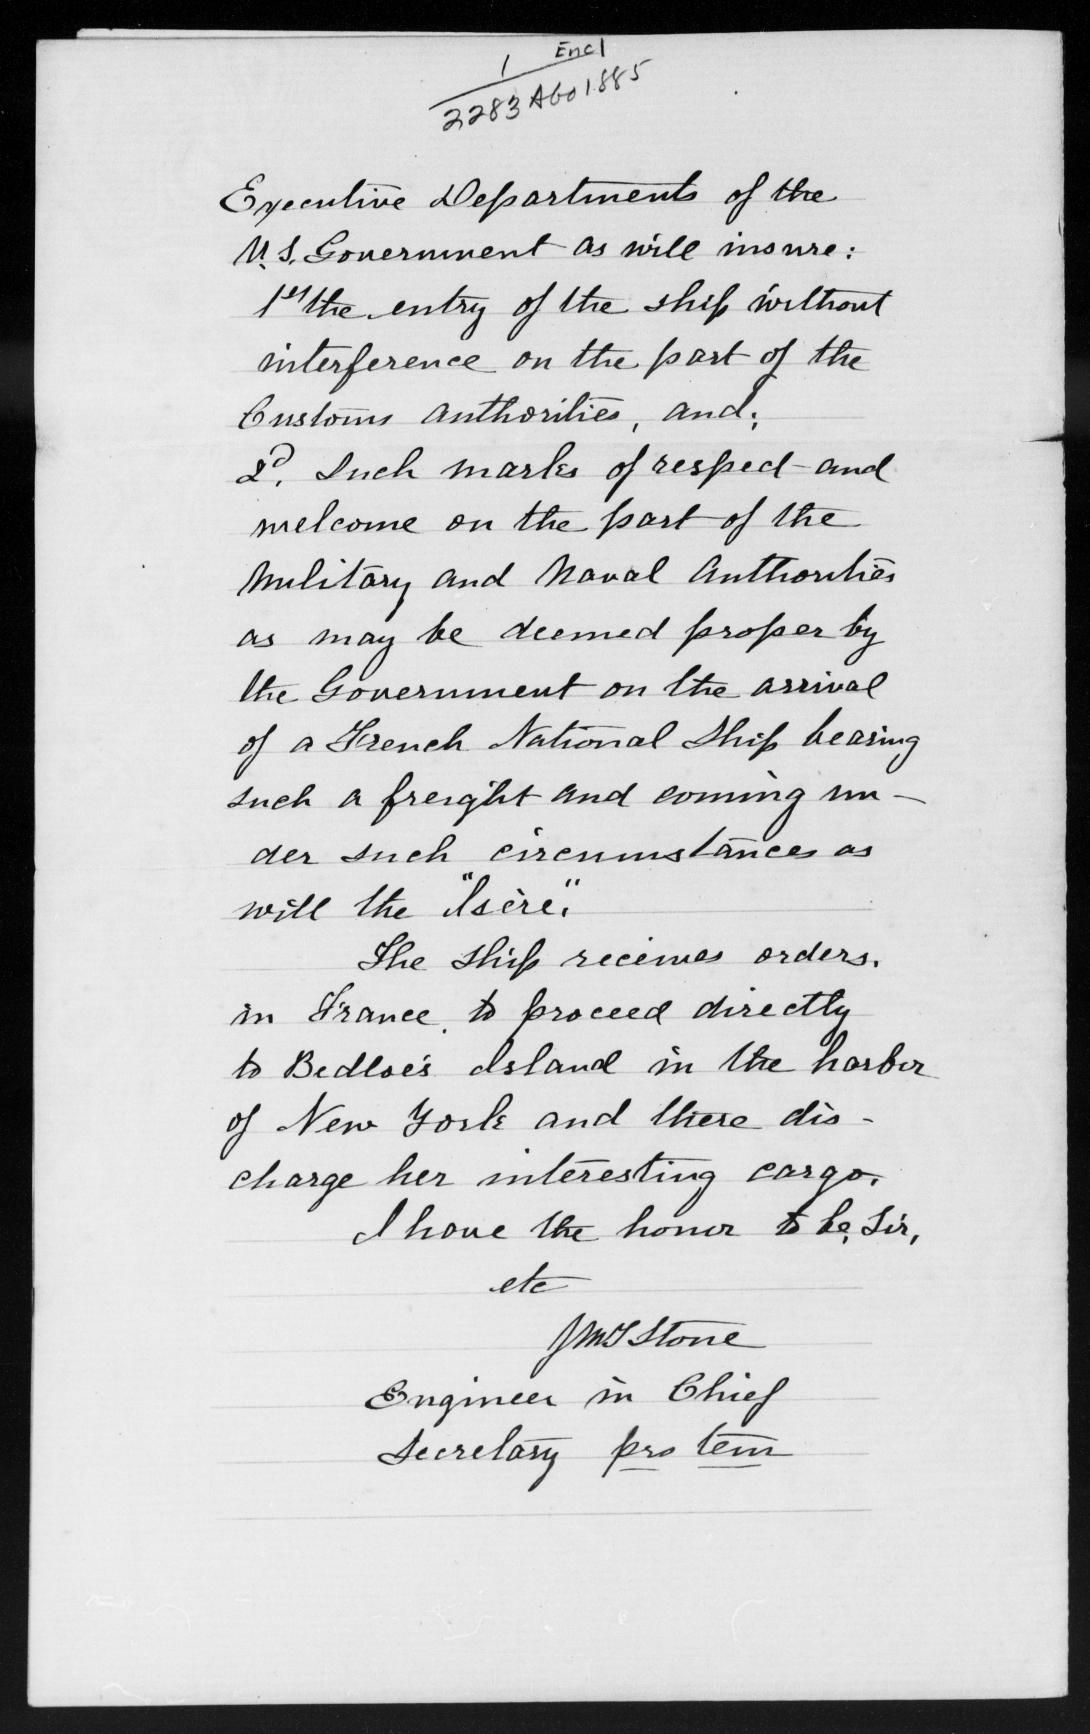 1 Encl
2283 AGO 1885
Executive Departments of the
U.S. Government as will insure:
1st the entry of the ship without
interference on the part of the
Customs authorities, and;
2d. Such marks of respect and
welcome on the part of the
Military and Naval Authorities
as may be deemed proper by
the Government on the arrival
of a French National Ship bearing
such a freight and coming un-
der such circumstances as
will the "Isère".
The ship receives orders.
in France, to proceed directly
to Bedloe's Island in the harbor
of New York and there dis-
charge her interesting cargo.
I have the honor to be, Sir,
etc
Stone
Engineer in Chief
Secretary pro tem